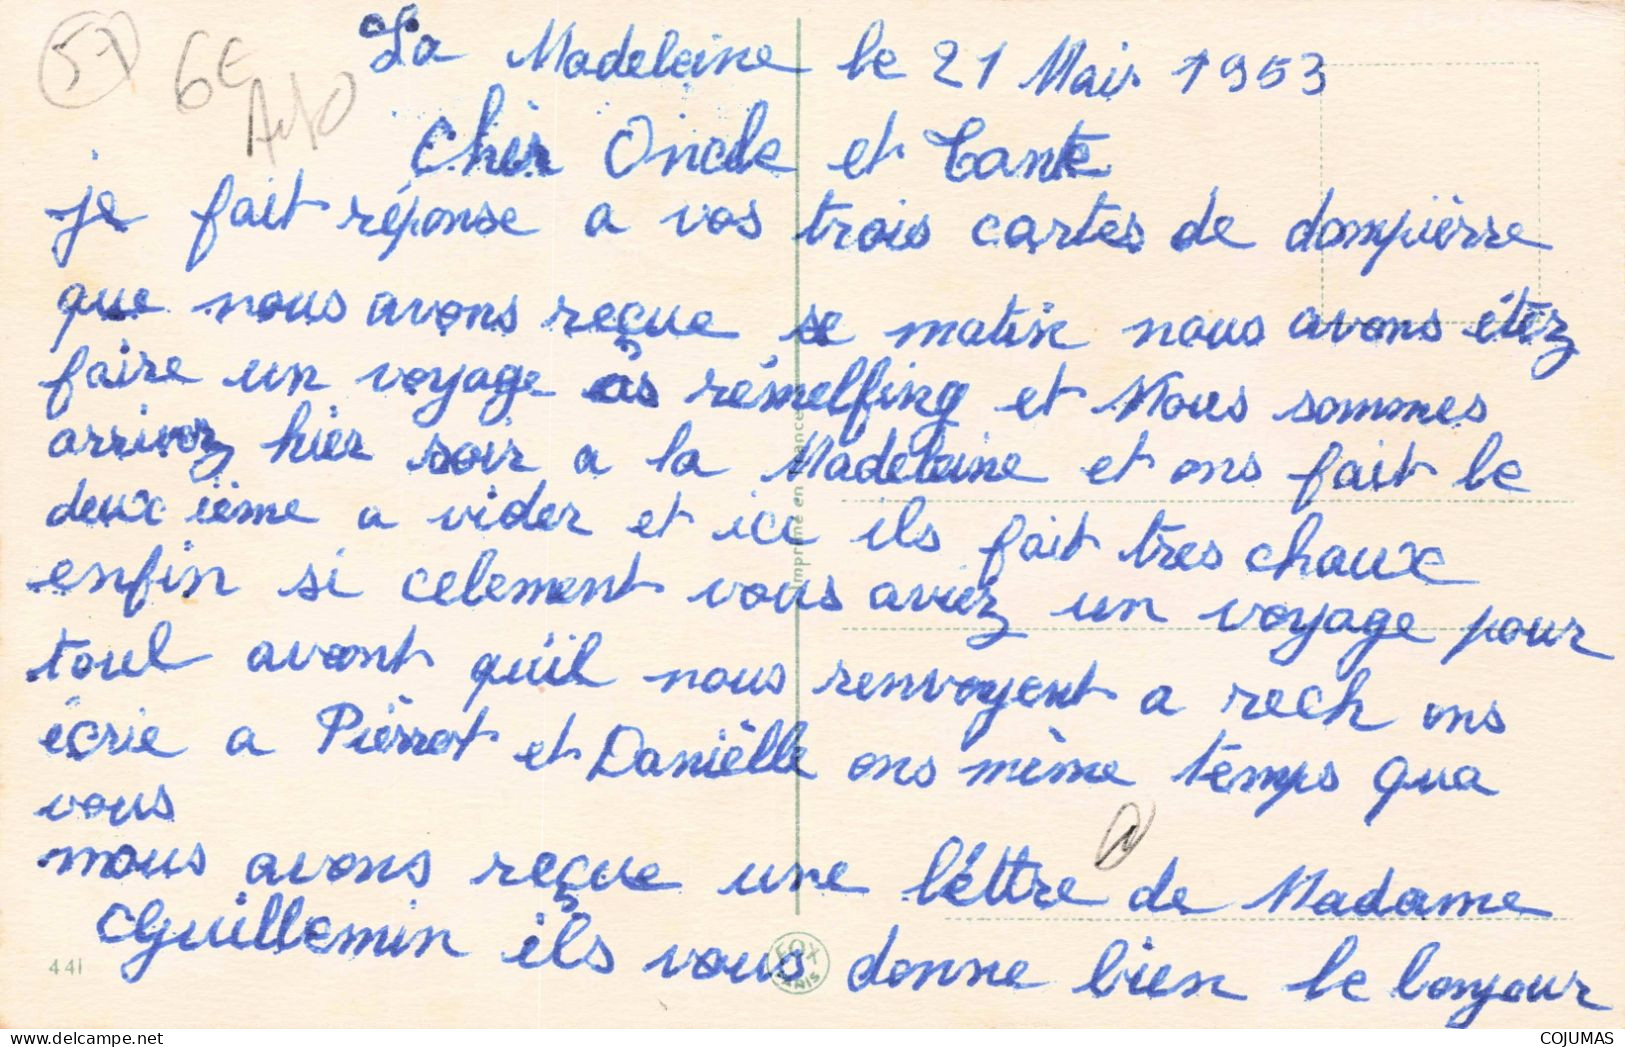 57
6€
La Madeleine le 21 Mais 1953
Cher Oncle et Tante
je fait réponse a vos trois cartes de dompièrre
que nous avons reçue se matin nous avons étéz
faire un voyage as rémelfing et Nous sommes
arrivez hier soir a la Madeleine et ons fait le
deux ième a vider et ici ils fait tres chaux
enfin si celement vous aviez un voyage pour
toul avant qu'il nous renvoyent a rech ons
écrie a Pièrrot et Danièlle ons mème temps qua
vous
nous avons reçue une léttre de Madame
Guillemin ils vous donne bien le bonjour
Imprimé en France
441
FOX
PARIS
COJUMAS